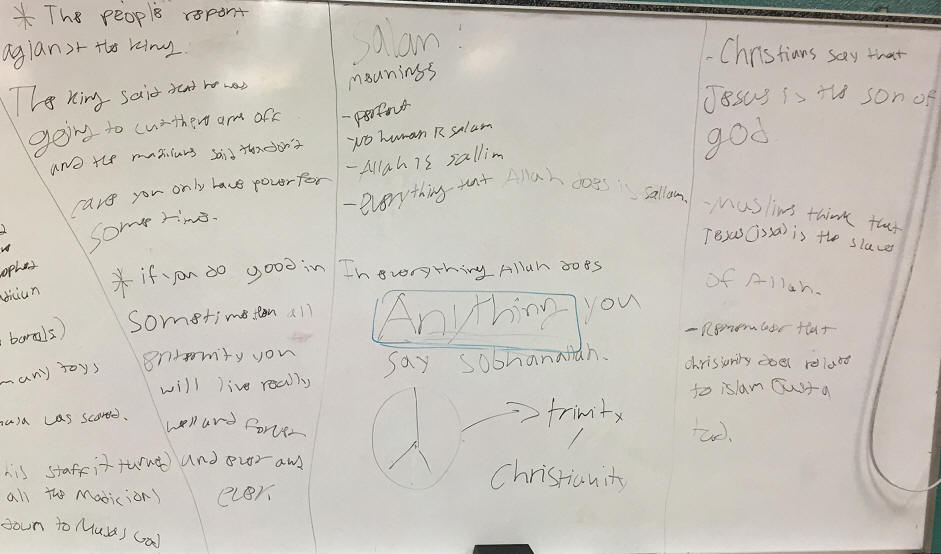 * The people repent
agianst the king.
The king said that he was
going to cut there arms off
and the said they don't
care you only have power for
some time.
* if you do good in
Sometime then all
enternity you
will live really
well and forver
and ever and
ever.
many toys
was scared.
his staff it turned
all the Madicions
down to Musas God
Salam:
meanings
- perfect
- No human R salam
- Allah is sallim
- everything that Allah does is sallam.
In everything Allah does
Anything you
say sobhanallah.
trinity
Christianity
- Christians say that
Jesus is the son of
god.
- Muslims think that
Jesus (issa) is the slaves
of Allah.
- Remember that
chrisianity does relate
to islam Just a
tad.